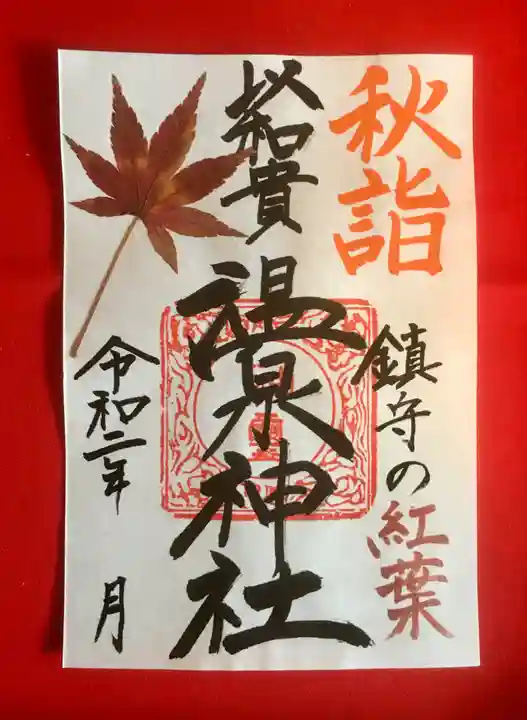 秋詣
鎮守の紅葉
貴
温泉神社
令和二年 月